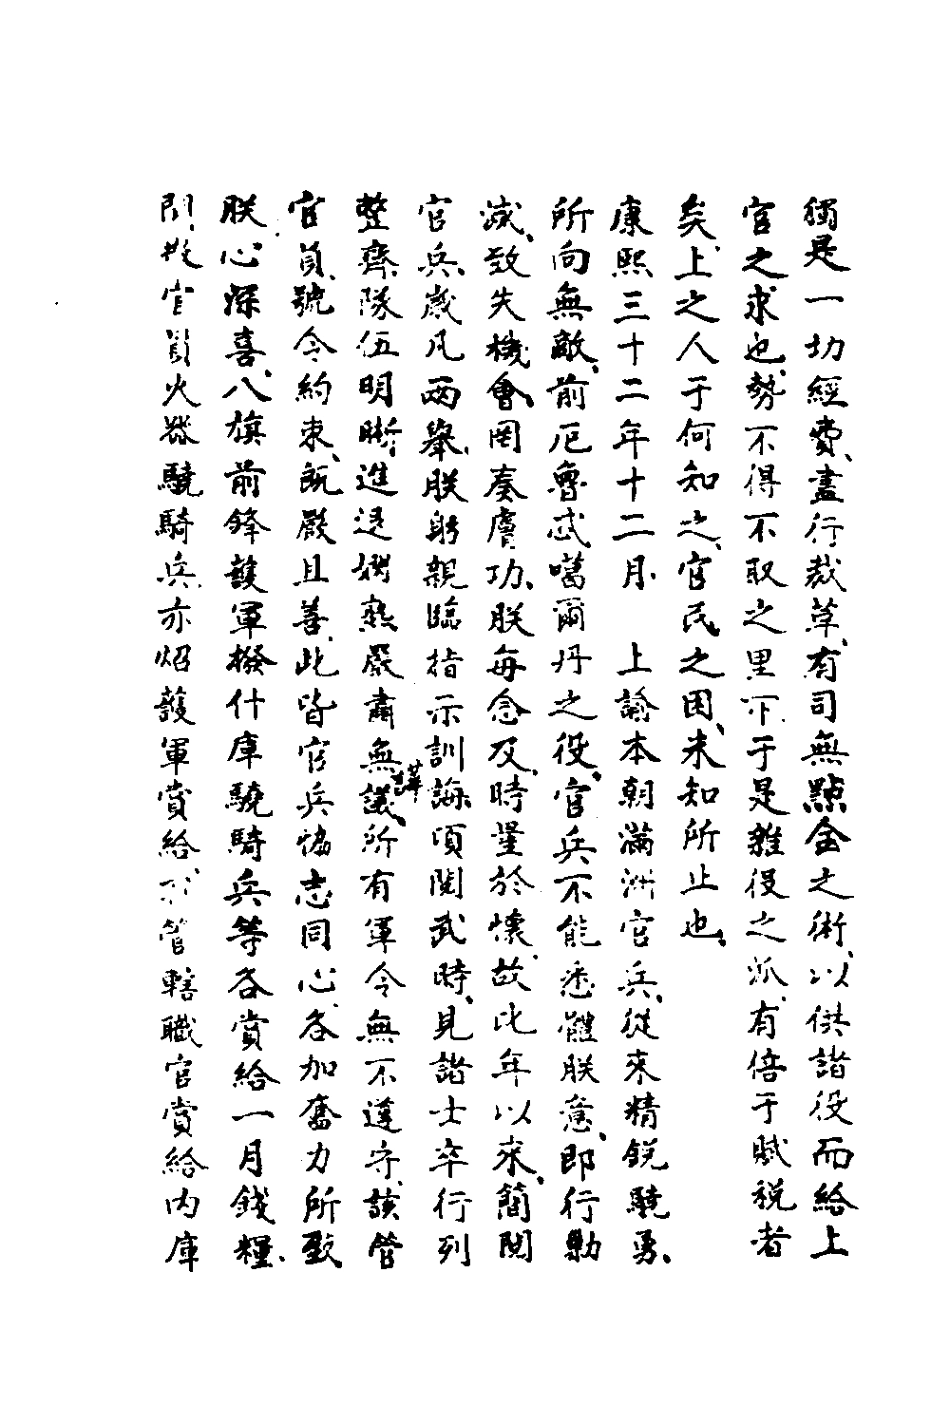 獨是一切經費、盡行裁革、有司無點金之術、以供諸役而給上
官之求也、勢不得不取之里下、于是雜役之派、有倍于賦稅者
矣、上之人于何知之、官民之困、未知所止也、
康熙三十二年十二月　上諭本朝滿洲官兵、從來精銳驍勇、
所向無敵、前厄魯忒噶爾丹之役、官兵不能悉體朕意、即行勦
滅、致失機會、罔奏膚功、朕每念及、時壅於懷、故比年以來、簡閱
官兵、歲凡兩舉、朕躬親臨指示訓誨、頃閱武時、見諸士卒行列
整齊、隊伍明晰、進退嫻熟、嚴肅無譁、所有軍令無不遵守、該管
官員、號令約束、既嚴且善、此皆官兵協志同心、各加奮力所致、
朕心深喜、八旗前鋒護軍撥什庫驍騎兵等各賞給一月錢糧、
閒散官員火器驍騎兵、亦炤護軍賞給、管轄職官賞給內庫